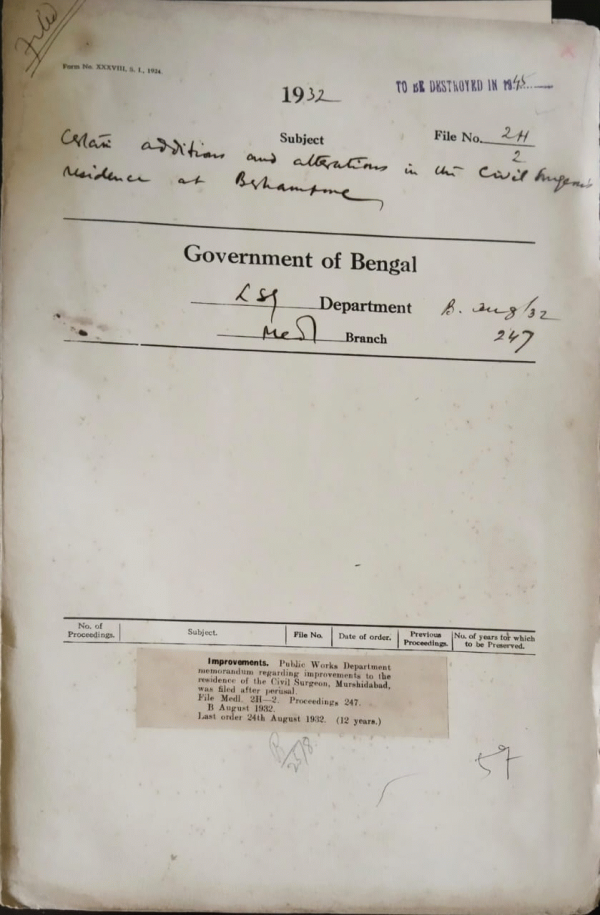 Filed
Form No. XXXVIII, S. I., 1924.
1932
TO BE DESTROYED IN 1945
Subject
File No. 2H/2
Certain additions and alterations in the Civil Surgeon's
residence at Berhampore
Government of Bengal
LSG Department
B. Aug/32
Medl Branch
247
No. of Proceedings. Subject. File No. Date of order. Previous Proceedings. No. of years for which to be Preserved.
Improvements. Public Works Department
memorandum regarding improvements to the
residence of the Civil Surgeon, Murshidabad,
was filed after perusal.
File Medl. 2H—2. Proceedings 247.
B August 1932.
Last order 24th August 1932. (12 years.)
25/8
57